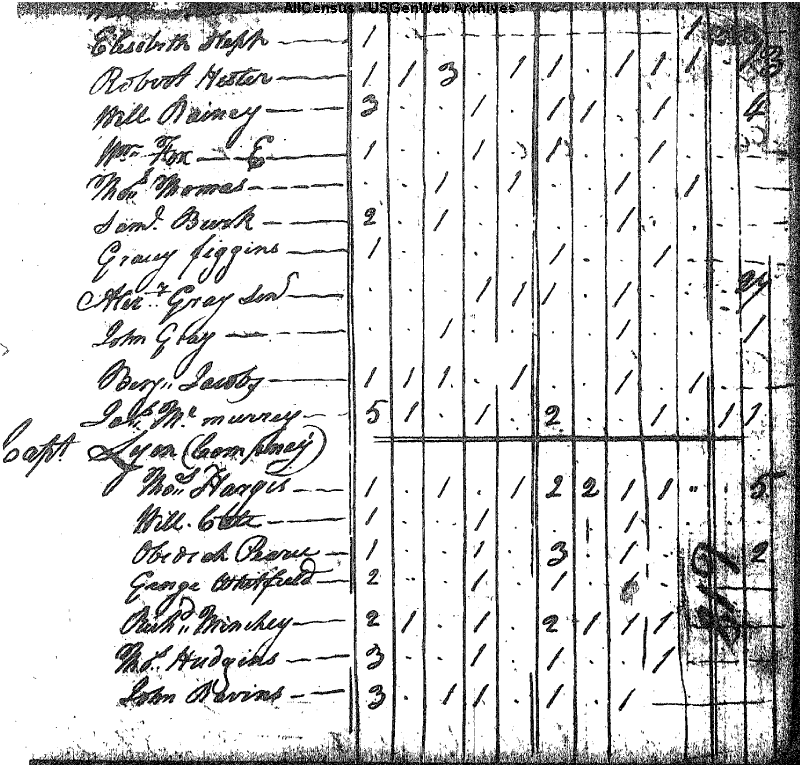 AllCensus - USGenWeb Archives
Elisebith Stepp 1 . . . . . . . . 1
Robert Hester 1 1 3 . 1 1 . 1 1 1 . 13
Will Rainey 3 . . 1 . 1 1 . 1 . . 4
Wm Fox E 1 . . 1 . 1 . . 1
Thos Thomas . . 1 . 1 . . 1 . 1
Saml Burk 2 . 1 . . . . 1
Gracey figgins 1 . . . . 1 . . 1
Alexr Gray Senr . . . 1 1 1 . 1
John Gray . . 1 . . . . 1 . . . 1
Benj. Jacobs 1 1 1 . 1 . . 1 . 1
Jas Mc murrey 5 1 . 1 . 2 . . 1 . 1 1
Capt Lyon (Compney)
Thos Hargis 1 . 1 . 1 2 2 1 1 " . 5
Will. 1 . . 1 . . 1 1
Obediah Pearce 1 . . 1 . 3 . 1 . . . 2
George Whitfield 2 . . 1 . 1 . 1
319
Richd Minchey 2 1 . 1 . 2 1 1 1
Thos Hudgins 3 . . 1 . 1 . . 1
John Bavins 3 . 1 1 . 1 . 1